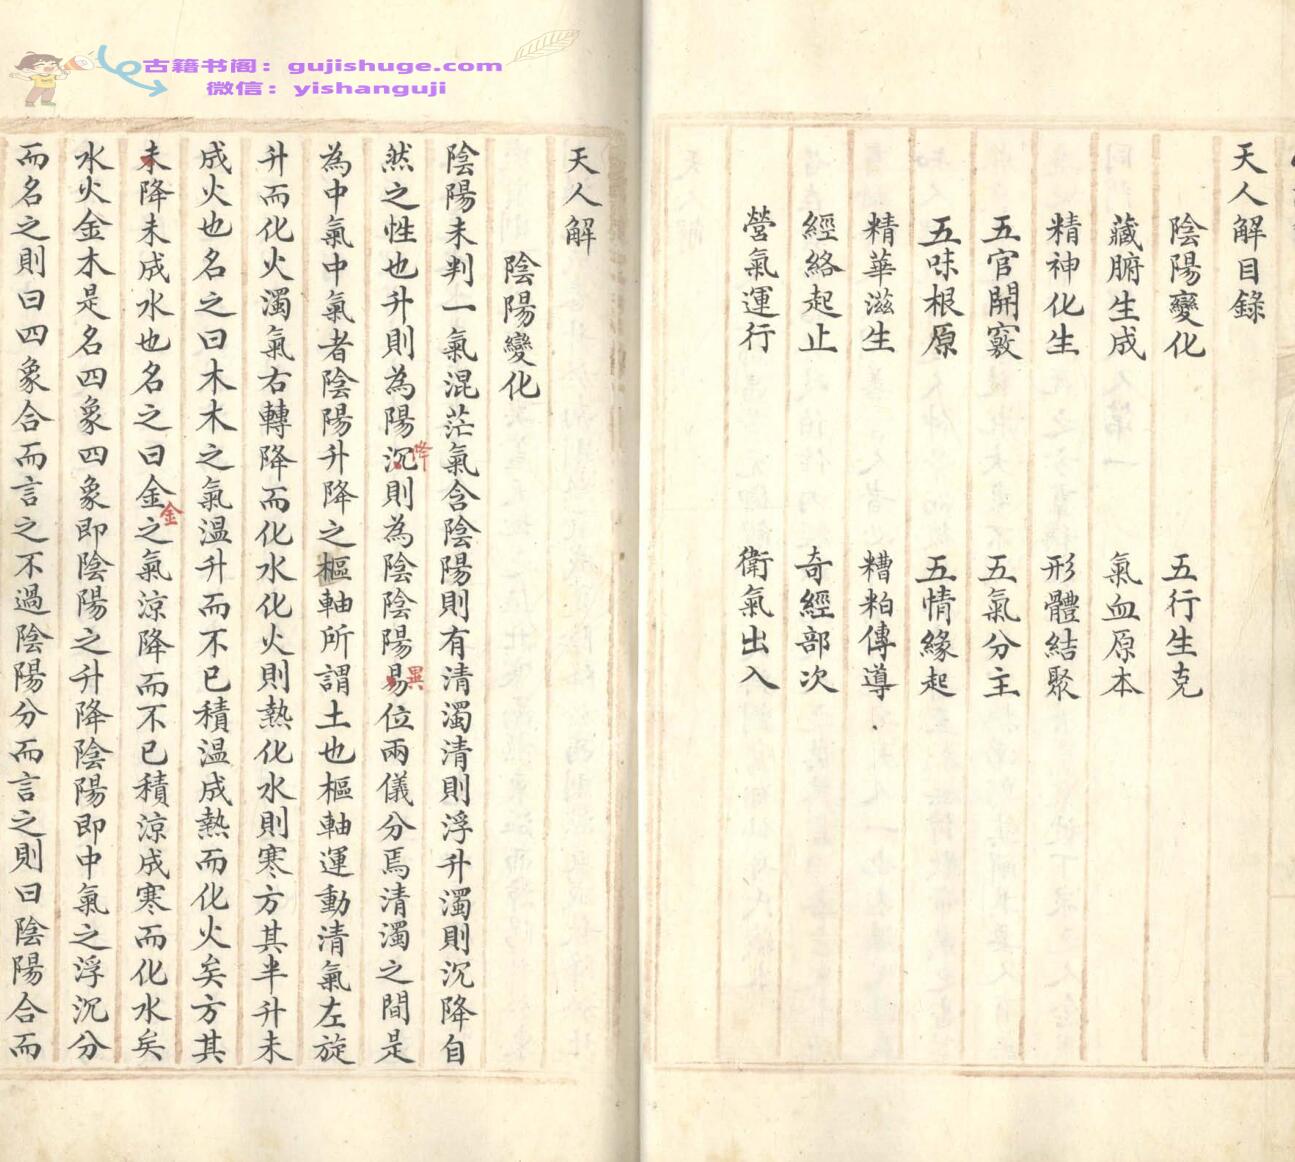 古籍书阁：gujishuge.com
微信：yishanguji
天人解目錄
陰陽變化 五行生克
藏腑生成 氣血原本
精神化生 形體結聚
五官開竅 五氣分主
五味根原 五情緣起
精華滋生 糟粕傳導
經絡起止 奇經部次
營氣運行 衛氣出入
天人解
陰陽變化
陰陽未判一氣混茫氣含陰陽則有清濁清則浮升濁則沉降自
然之性也升則為陽沉則為陰陰陽易位兩儀分焉清濁之間是
降
異
為中氣中氣者陰陽升降之樞軸所謂土也樞軸運動清氣左旋
升而化火濁氣右轉降而化水化火則熱化水則寒方其半升未
成火也名之曰木木之氣溫升而不已積溫成熱而化火矣方其
未降未成水也名之曰金之氣涼降而不已積涼成寒而化水矣
金
水火金木是名四象四象即陰陽之升降陰陽即中氣之浮沉分
而名之則曰四象合而言之不過陰陽分而言之則曰陰陽合而